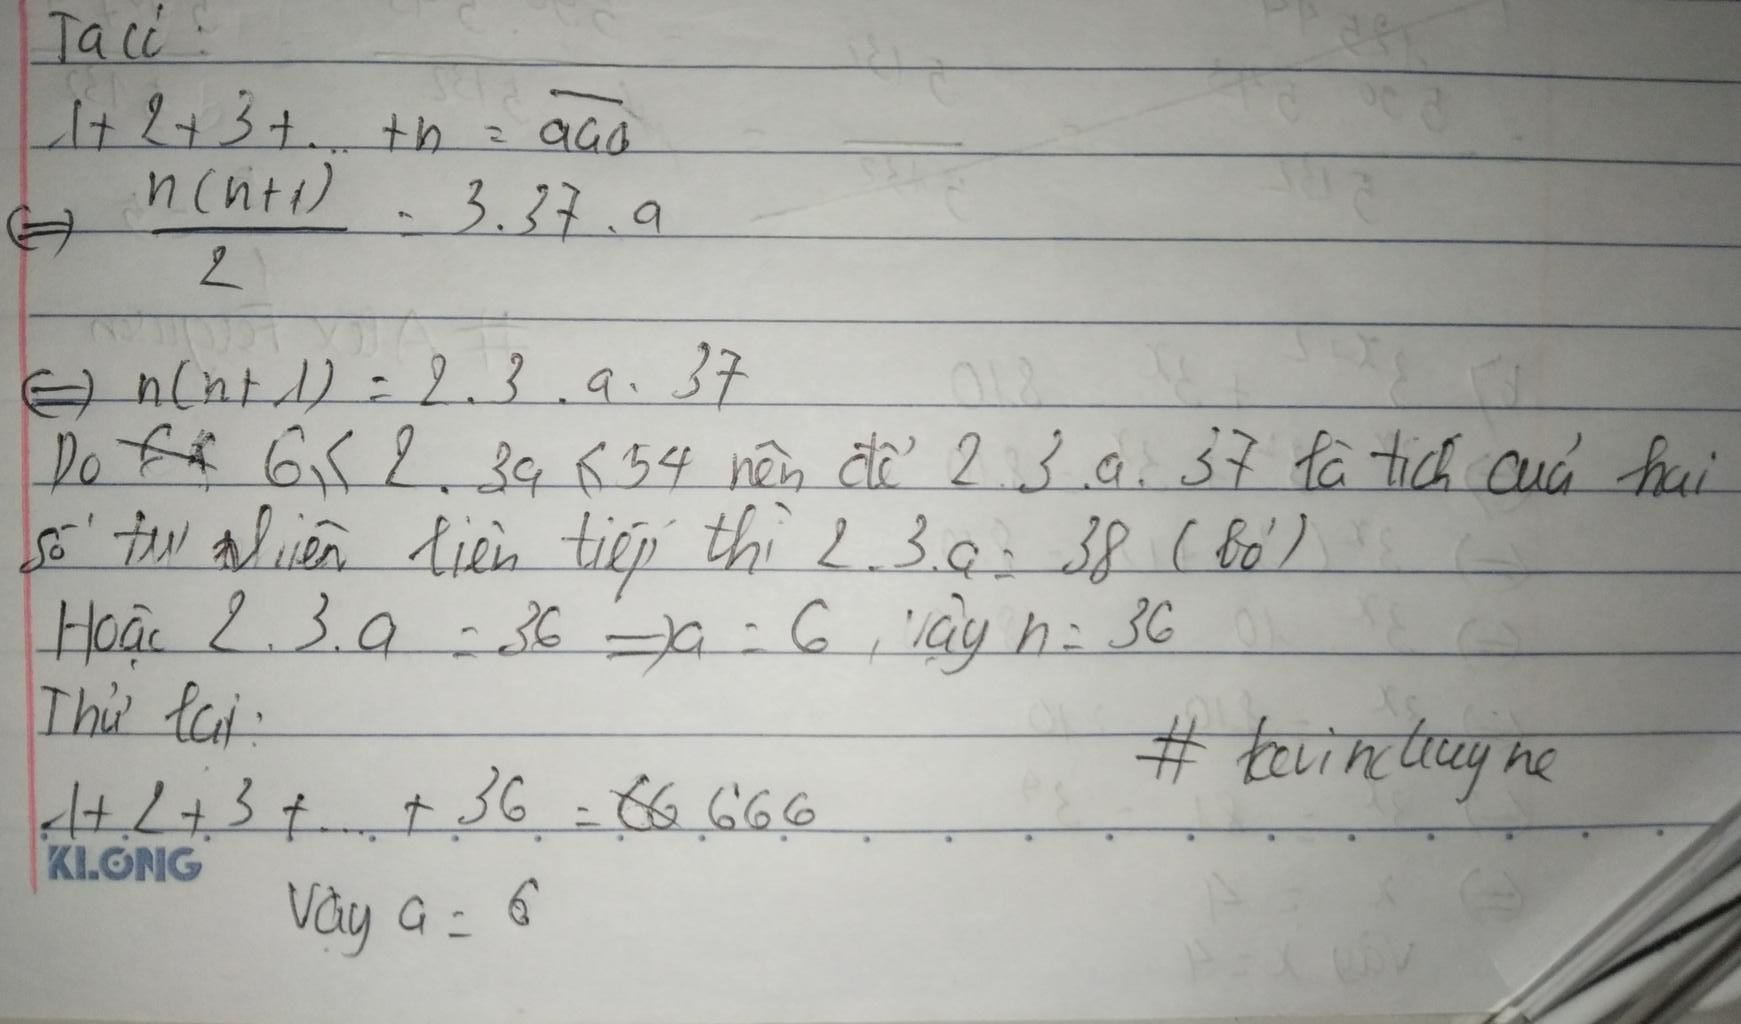 Ta có:
1+2+3+... +n = \overline{aaa}
⇔ n(n+1)/2 = 3.37.a
⇔ n(n+1) = 2.3.a.37
Do 6 ≤ 2.3a ≤ 54 nên để 2.3.a.37 là tích của hai
số tự nhiên liên tiếp thì 2.3.a = 38 (bỏ)
Hoặc 2.3.a = 36 ⇒ a = 6, vậy n = 36
Thử lại:
# kevincluayne
1+2+3+... + 36 = 666
KLONG
Vậy a = 6